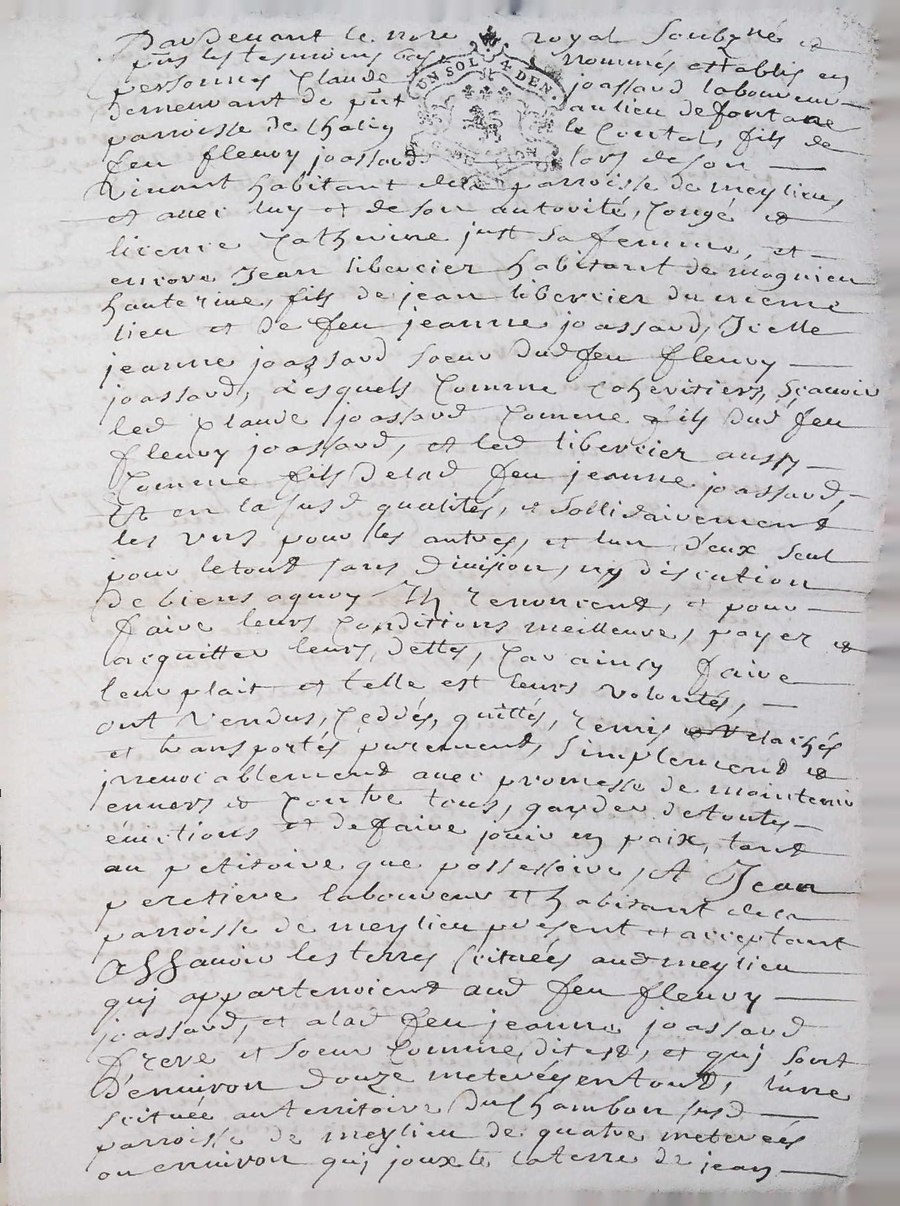 Pardevant le nore royal Soubzné et
pnts les tesmoins bas nommés et tablis en
UN SOL. 4. DEN.
personnes Claude joassard laboureur
demeurant de pnt au lieu de fontane
parroisse de Chalin le Contal, fils de
feu fleury joassard lors de son
Vivant habitant dela parroisse de meylieu,
et avec luy et de son autorité, Congé et
licence Catherine just sa femme, et
encore Jean libercier habitant de magnieu
hauterive, fils de jean libercier du meme
lieu et de feu jeanne joassard, Icelle
jeanne joassard soeur dud feu fleury
joassard, desquels Comme Cohéritiers, Scavoir
led Claude joassard Comme fils dud feu
fleury joassard, et led libercier aussy
Comme fils delad feu jeanne joassard,
Et en la susd qualités, et Sollidairement
les uns pour les autres, et lun d'eux seul
pour letout sans division, ny discution
de biens aquoy Ils renoncent, et pour
faire leurs Conditions meilleure, payer et
acquitter leurs dettes, Car ainsy faire
leur plait et telle est leurs volontés,
ont Vendus, Ceddés, quittés, remis relachés
et transportés purement, simplement et
irrevocablement avec promesse de maintenir
envers et Contre tous, garder detouts
évictions et de faire jouir en paix, tant
au petitoire que possessoire, A Jean
peretiere laboureur et habitant dela
parroisse de meylieu présent et acceptant
Assavoir les terres scituées aud meylieu
qui appartenoient aud feu fleury
joassard, et alad feu jeanne joassard
frere et soeur Comme dit est, et qui sont
d'environ douze meterées entout, l'une
scituée au territoire du Chambon susd
parroisse de meylieu de quatre meterées
ou environ qui jouxte la terre de jean